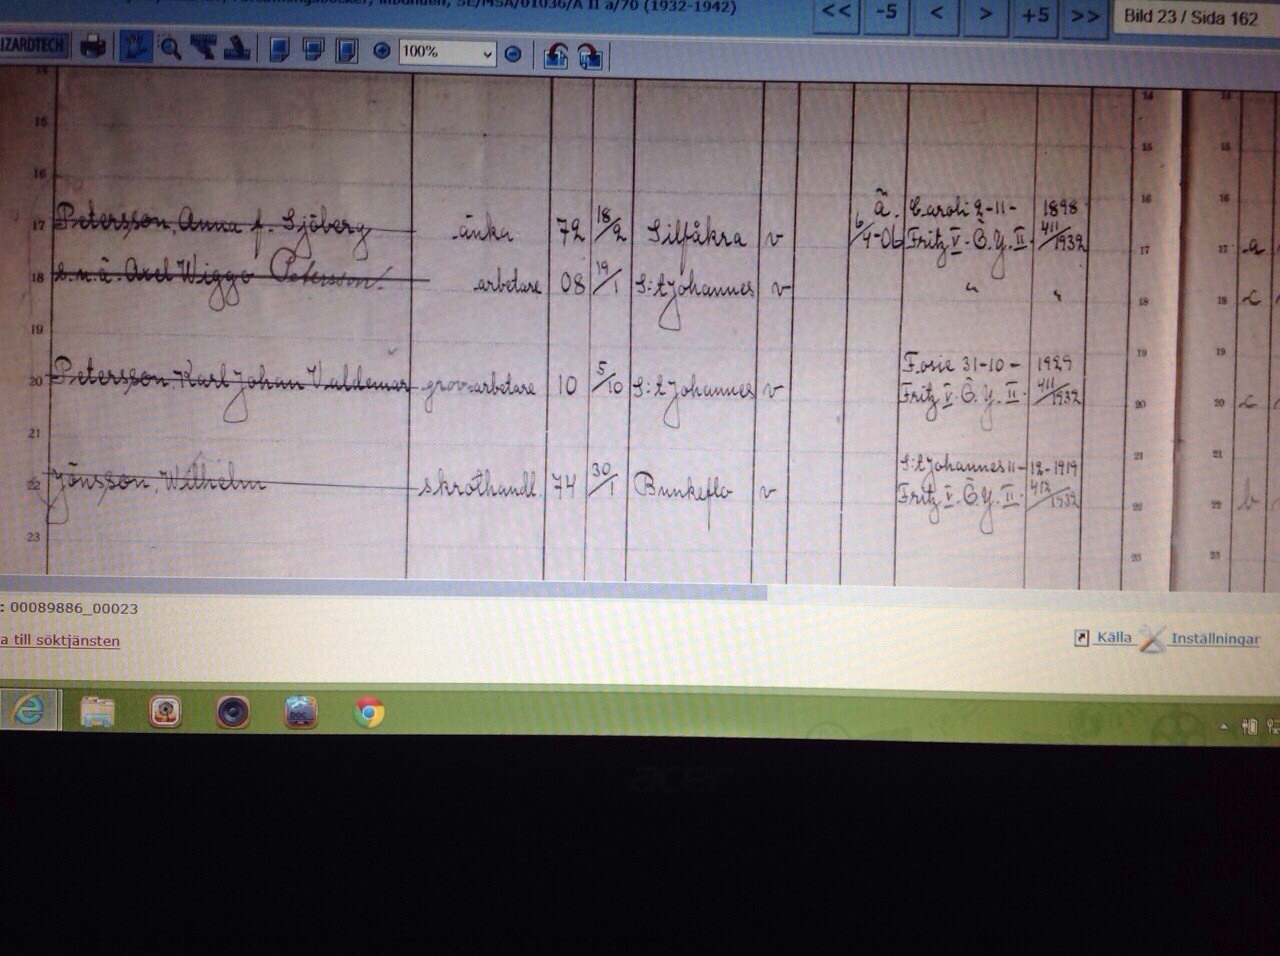 SE/MSA/01036/A II a/70 (1932-1942)
<< -5 < > +5 >> Bild 23 / Sida 162
LIZARDTECH 100%
14 14 14
15 15 15
16 16 16
ä. Caroli 2-11- 1898
17 Petersson, Anna f. Sjöberg änka 72 18/2 Silfåkra v 6/4-06 Fritz V. Ö. Y. II. 411/1932 17 17 a
18 s.n.ä. Axel Wiggo Petersson. arbetare 08 19/1 S:t Johannes v " " 18 18 c
19 Fosie 31-10- 1929 19 19
20 Petersson, Karl Johan Valdemar grovarbetare 10 5/10 S:t Johannes v Fritz V. Ö. Y. II. 411/1932 20 20 c
21 S:t Johannes 11-12-1919 21 21
22 Jönsson, Wilhelm skrothandl. 74 30/1 Bunkeflo v Fritz V. Ö. Y. II. 412/1932 22 22 b
23 23 23
: 00089886_00023
a till söktjänsten
Källa Inställningar
DOC
acer